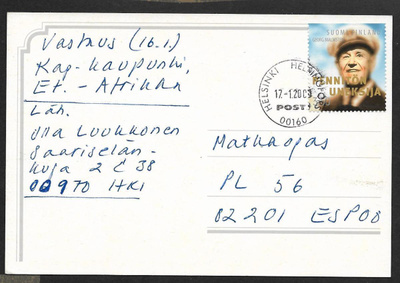 Vastaus (16.1.)
Kap-kaupunki,
Et. - Afrikka
Läh.
Ulla Luukkonen
Saariselän-
kuja 2 C 38
00970 HKI
SUOMI FINLAND
LENNI
UNEKSIJA
HELSINKI HELSINGFORS
17.-1.20
POSTI
00160
Matkaopas
PL 56
02201 ESPOO